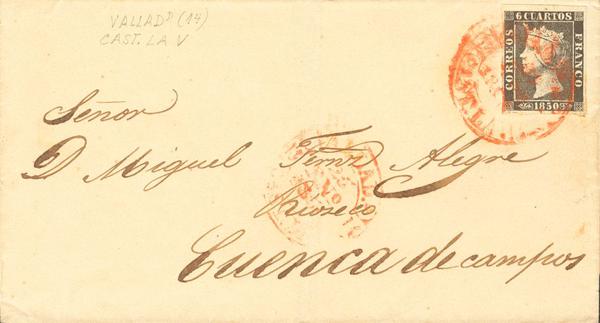 VALLADᵈ (14)
CAST. LA V
6 CUARTOS
CORREOS
FRANCO
1850
Señor
D Miguel Fernz Alegre
Rioseco
Cuenca de campos